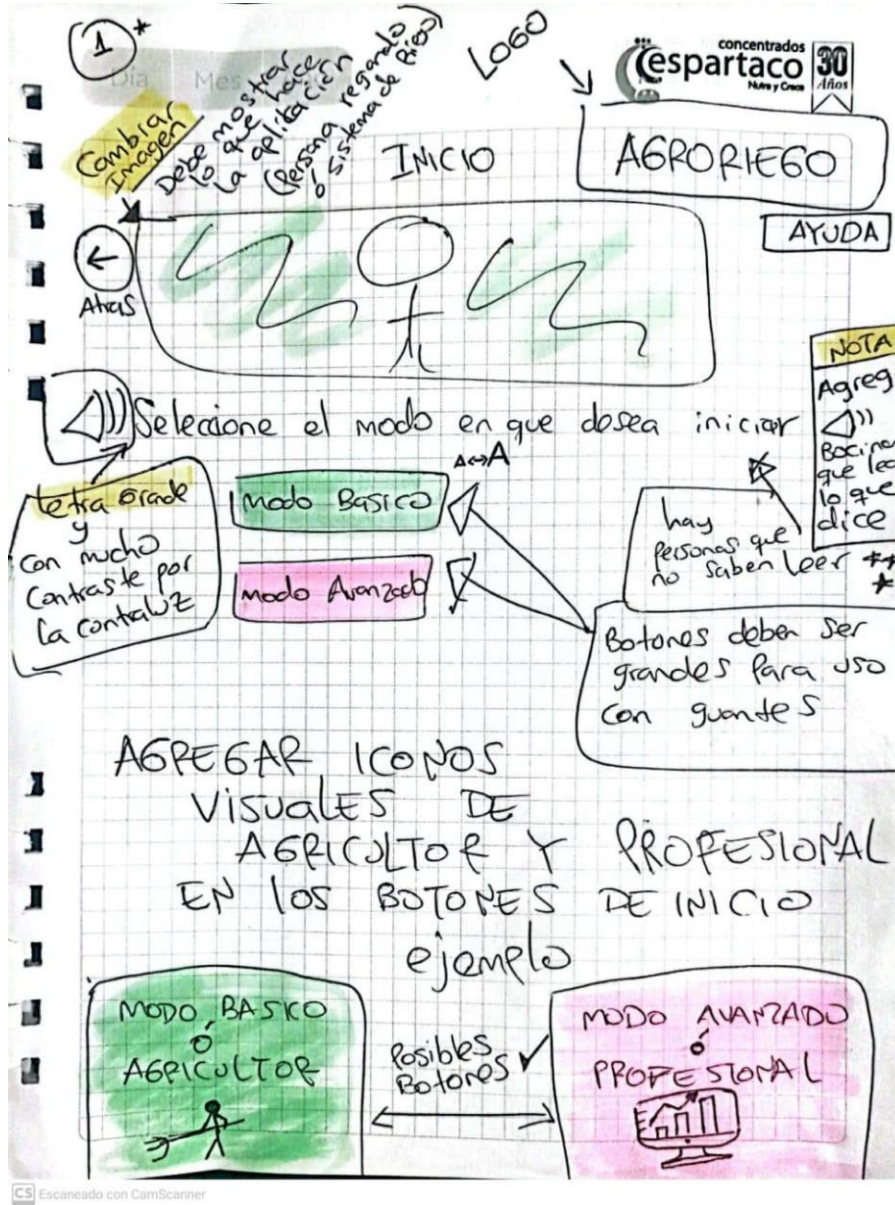 1 *
Día Mes
LOGO
concentrados
espartaco
Nutre y Crece
30
Años
Cambiar
Imagen
Debe mostrar
lo que hace
la aplicación
(Persona regando
ó sistema de Riego)
INICIO
AGRORIEGO
AYUDA
Atras
NOTA
Agreg
Bocina
que lea
lo que
dice
Seleccione el modo en que desea iniciar
A↔A
letra Grade
y
con mucho
contraste por
la contraluz
Modo Basico
Modo Avanzado
hay
personas que
no saben leer **
*
Botones deben ser
grandes Para uso
con guantes
AGREGAR ICONOS
VISUALES DE
AGRICULTOR Y PROFESIONAL
EN LOS BOTONES DE INICIO
ejemplo
MODO BASICO
ó
AGRICULTOR
Posibles
Botones
MODO AVANZADO
ó
PROFESIONAL
CS Escaneado con CamScanner